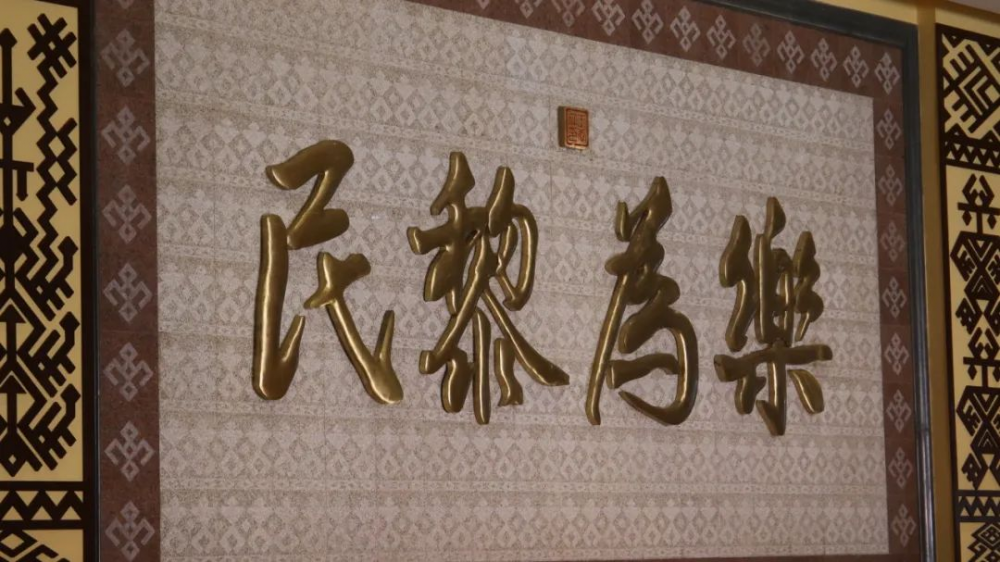 樂為黎民